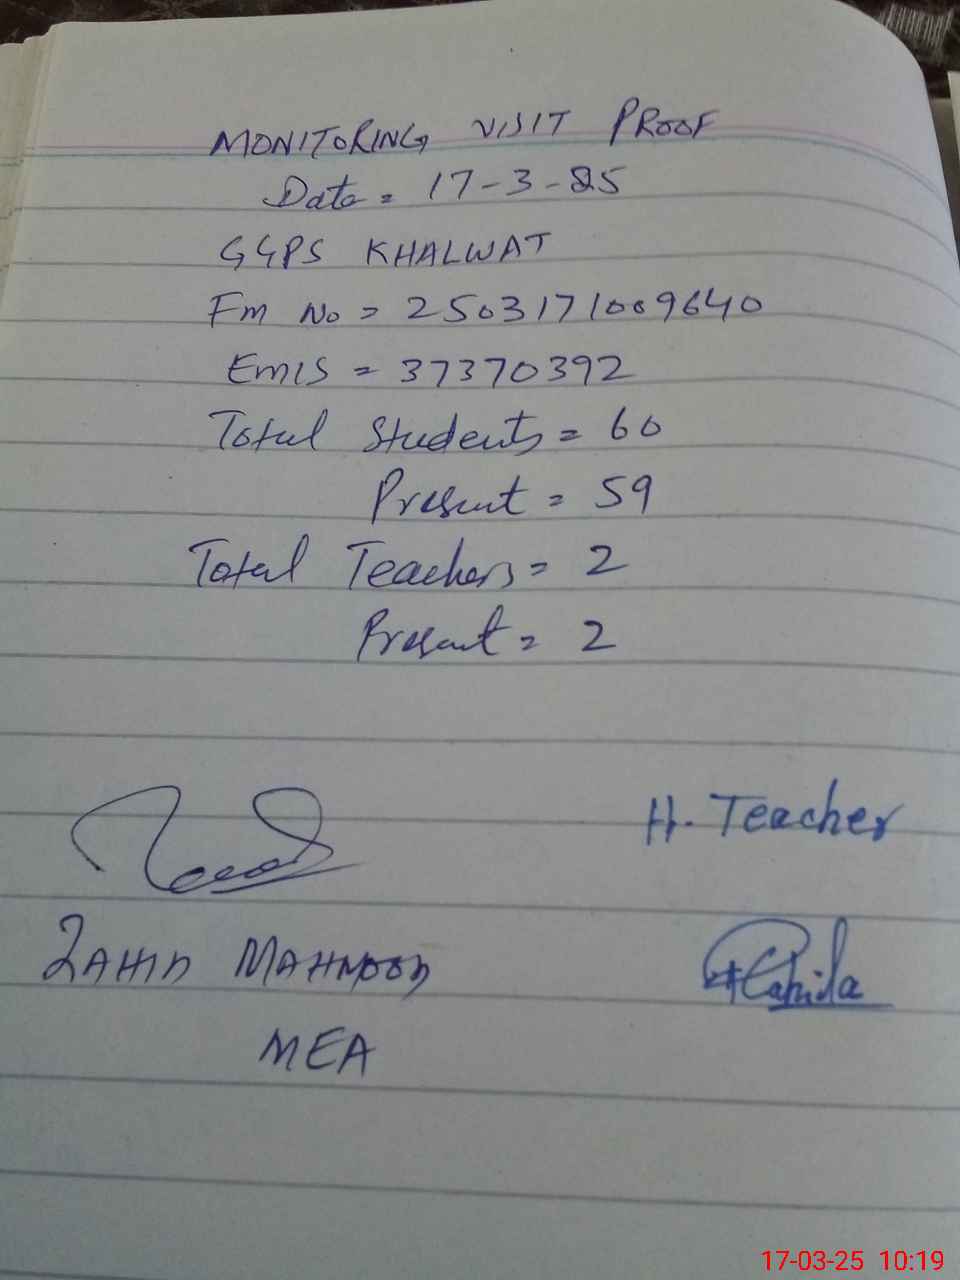 MONITORING VISIT PROOF
Date = 17-3-25
GGPS KHALWAT
Fm No = 2503171009640
EMIS = 37370392
Total Students = 60
Present = 59
Total Teachers = 2
Present = 2
H. Teacher
ZAHID MAHMOOD
MEA
17-03-25 10:19